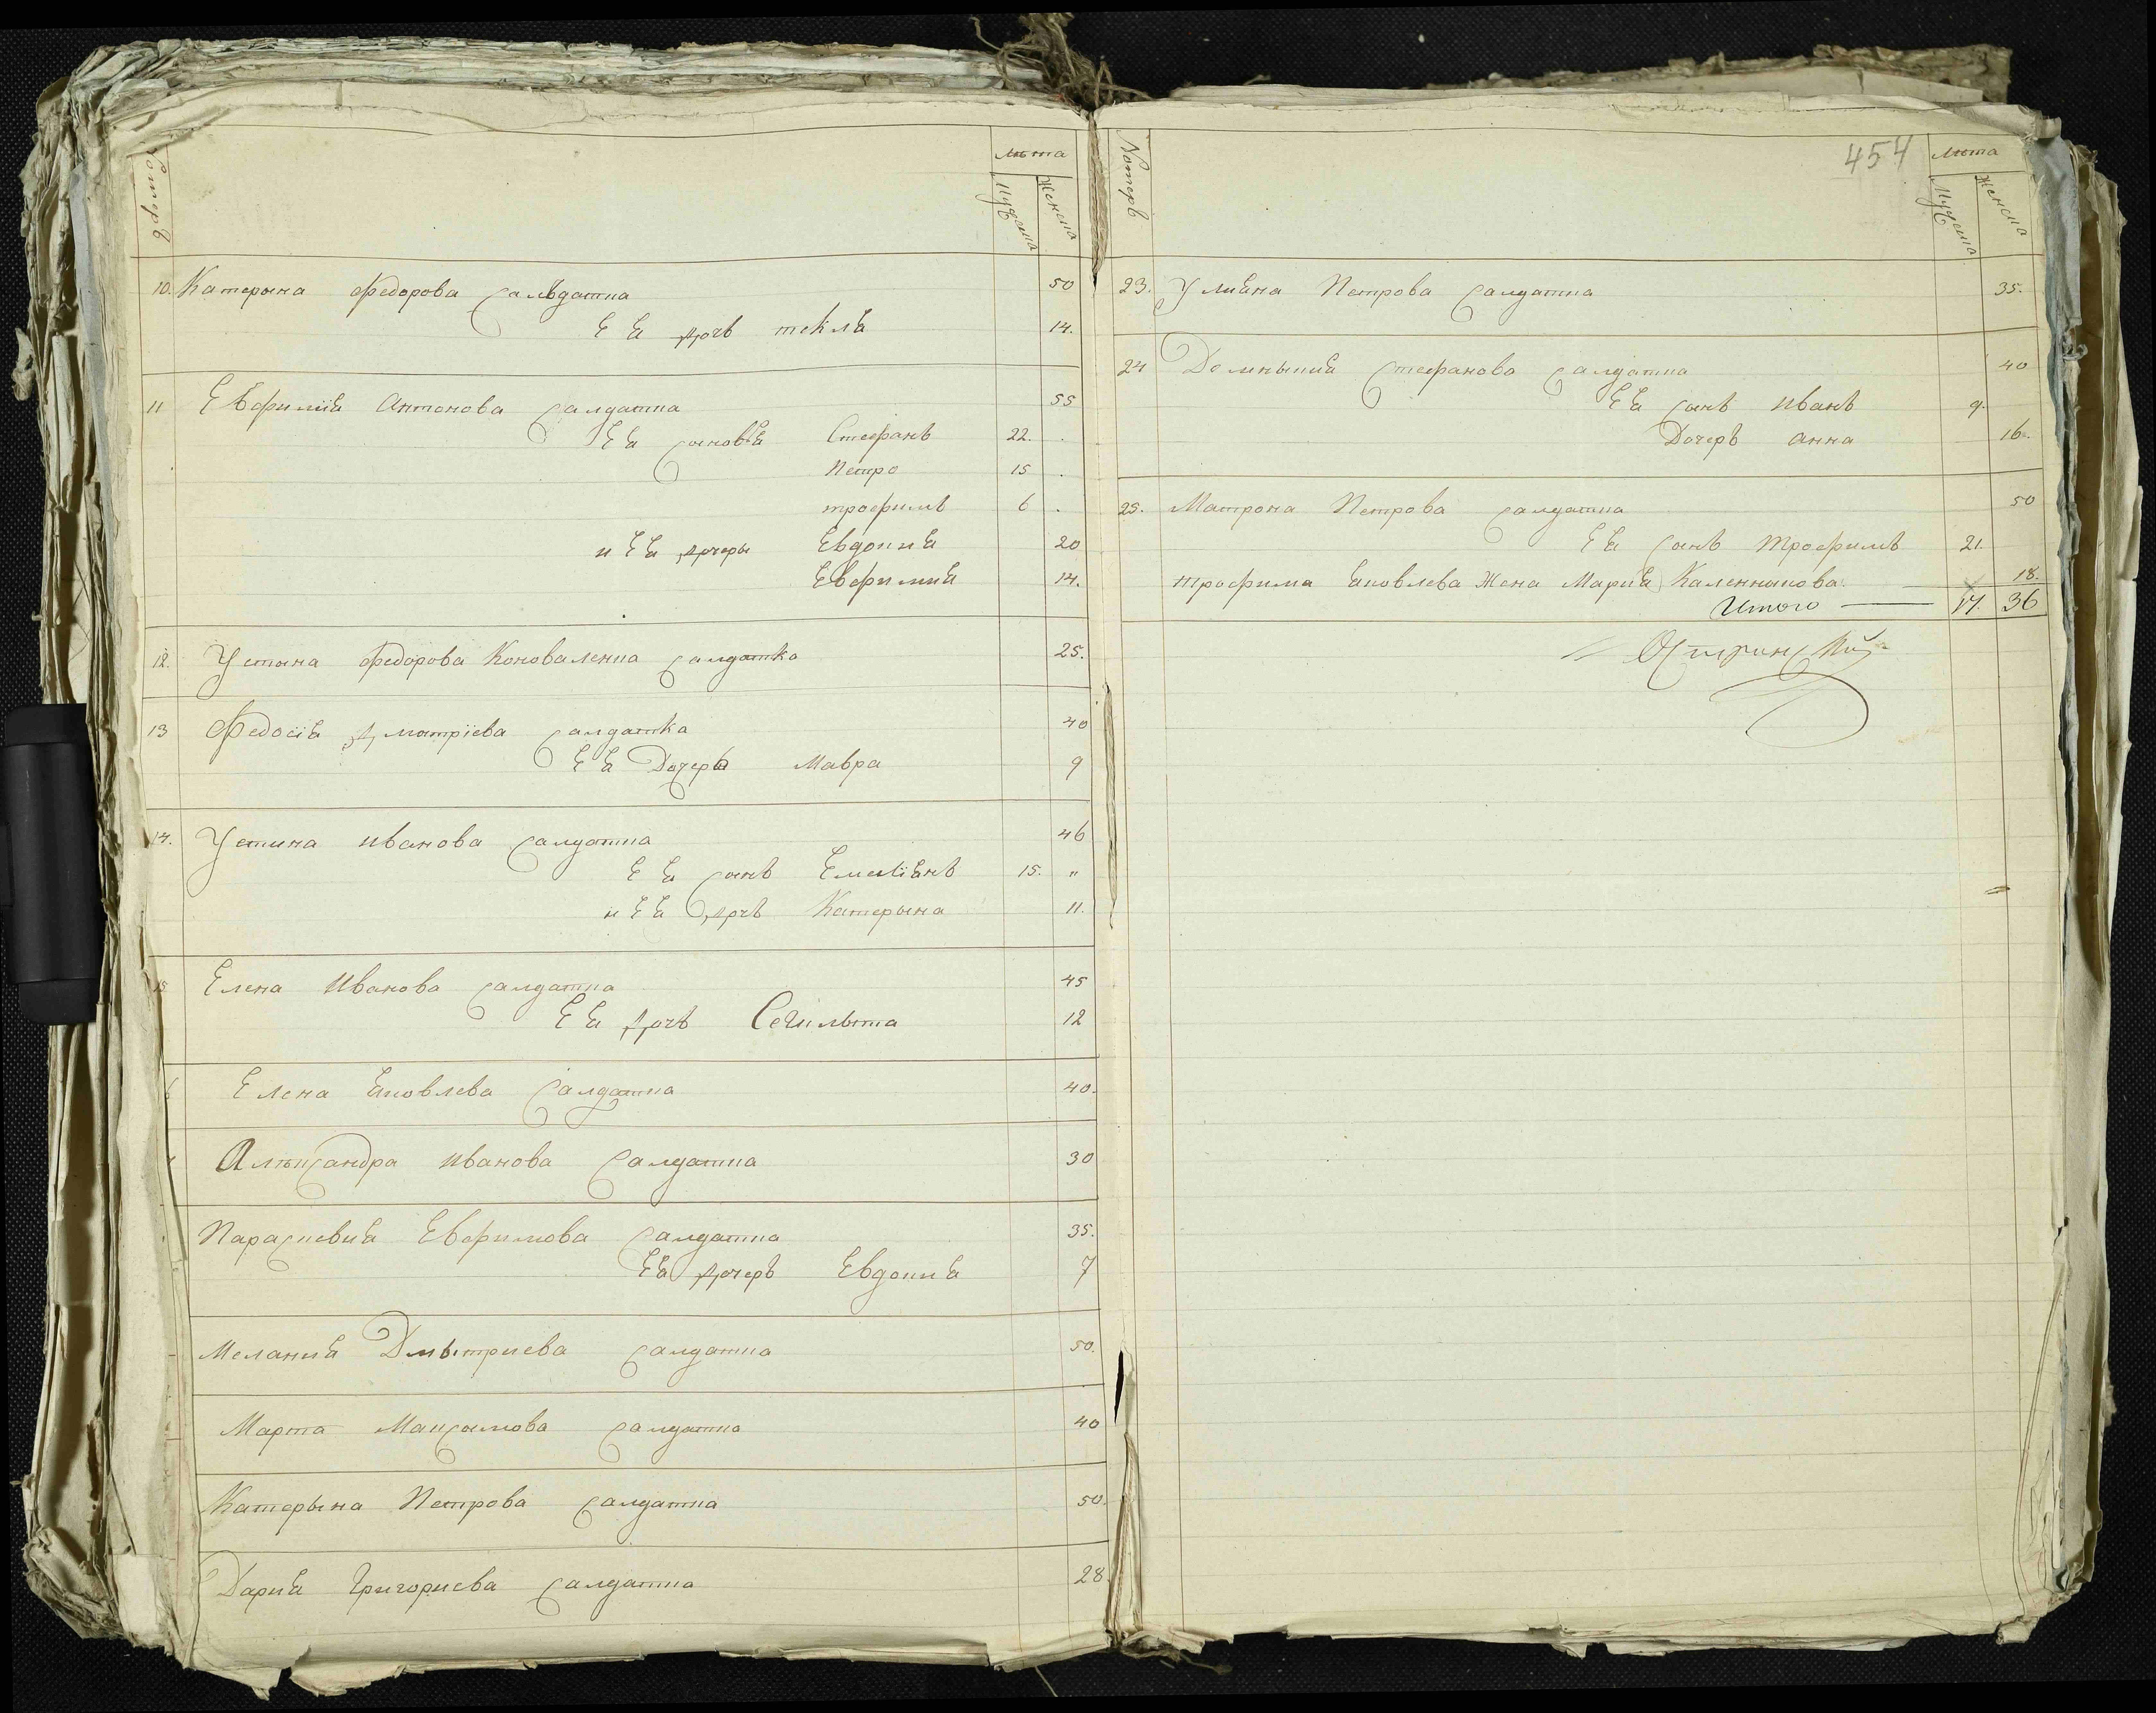 Номеръ
лѣта
Мужеска
Женска
10. Катерына Федорова Сальдатка 50
Ея дочь текля 14.
11 Евфимія Антонова Салдатка 55
Ея Сыновья Стефанъ 22.
Петро 15
трофимъ 6
и Ея дочеры Евдокия 20
Евфимия 14.
12. Устына Федорова Коноваленка Салдатка 25.
13 Федосія Дмытріева Салдатка 40
Ея Дочеръ Мавра 9
14. Устина иванова Салдатка 46
Ея Сынъ Емеліянъ 15. "
и Ея дочь Катерына 11.
15 Елена Иванова Салдатка 45
Ея дочь 12
6 Елена Яковлева Салдатка 40.
Алѣксандра иванова Салдатка 30
Параскевия Евфимова Салдатка 35.
Ея дочеръ Евдокия 7
Мелания Дмытриева Салдатка 50.
Марта Максымова Салдатка 40
Катерына Петрова Салдатка 50.
Дария Григориева Салдатка 28.
Номеръ
454
лѣта
Мужеска
Женска
23. Улияна Петрова Салдатка 35.
24 Домныкия Стефанова Салдатка 40
Ея Сынъ иванъ 9.
Дочеръ анна 16.
25. Матрона Петрова Салдатка 50
Ея Сынъ Трофимъ 21.
трофима Яковлева Жена Мария Каленникова. 18.
Итого — 17. 36